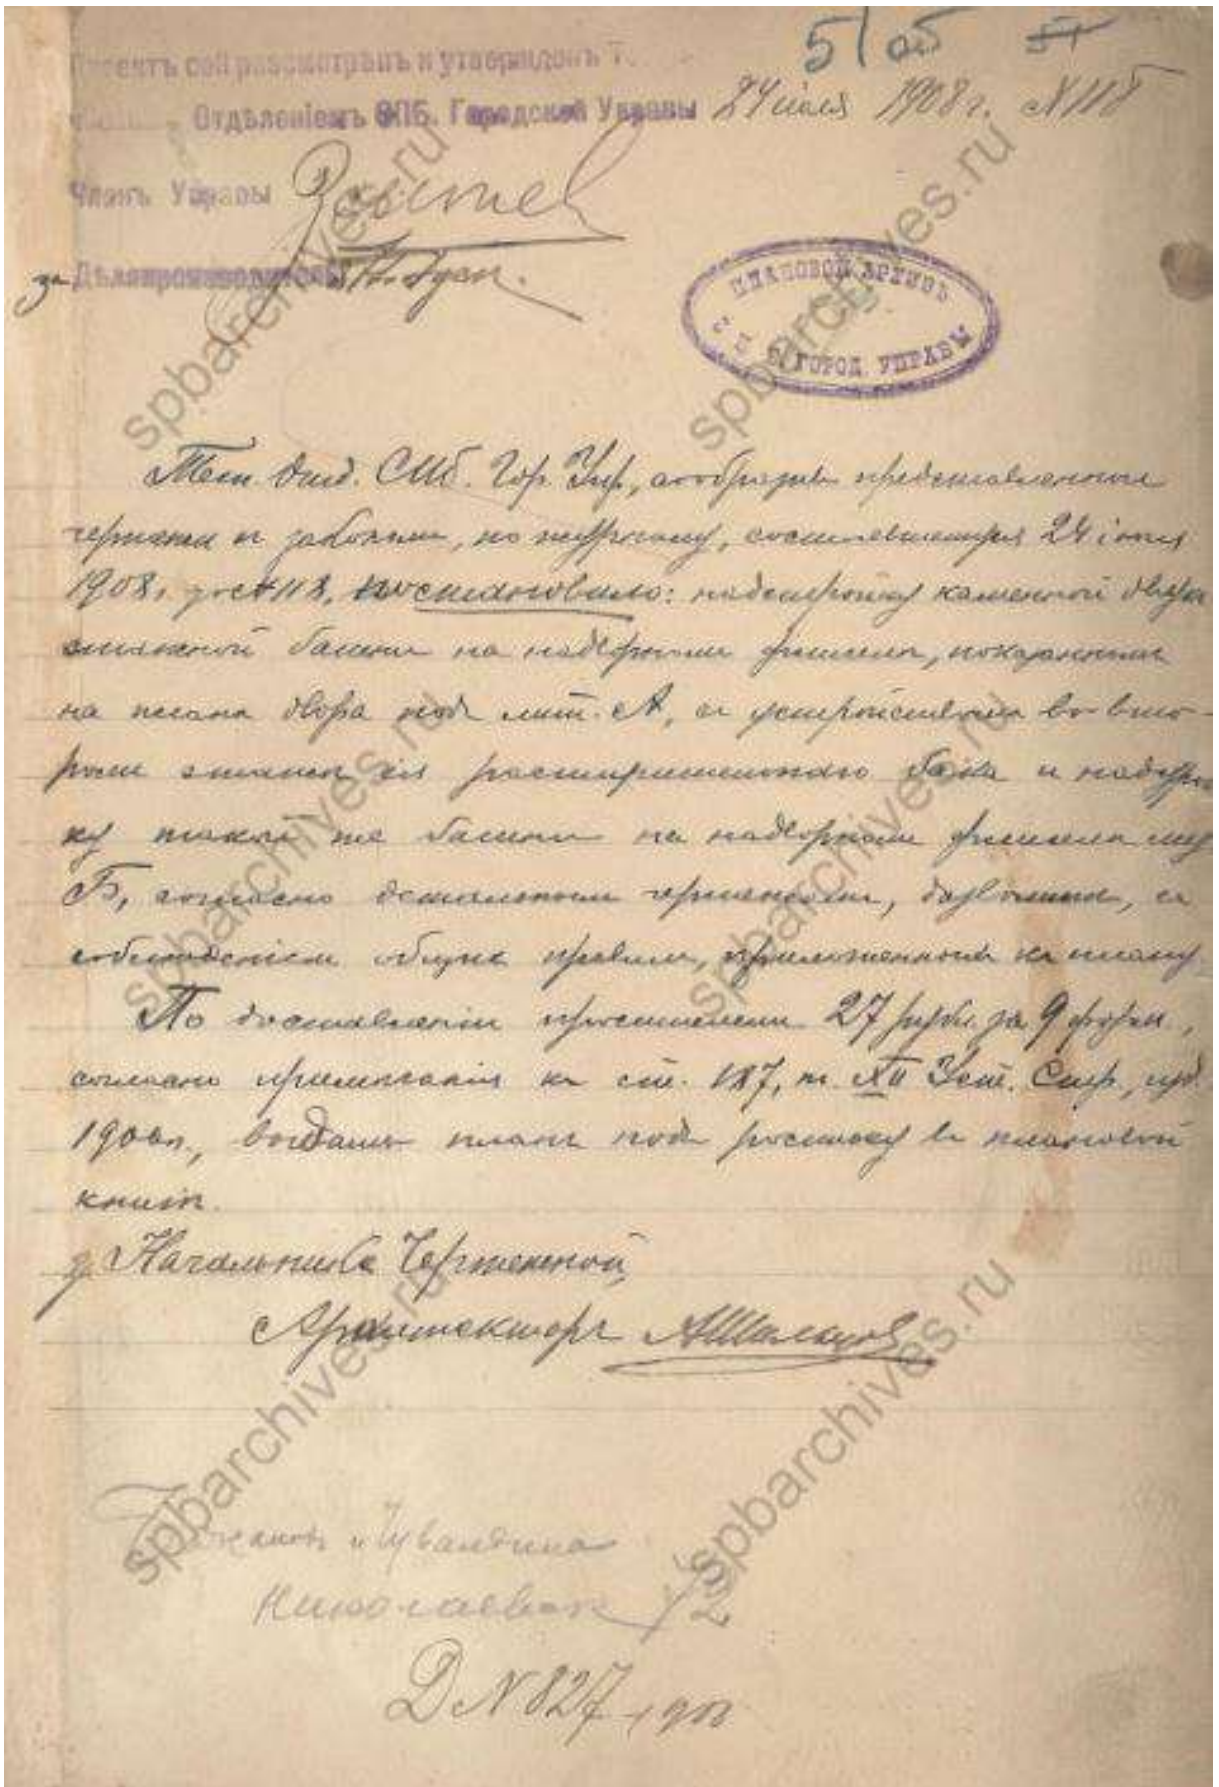 51 об 51
Проектъ сей разсмотрѣнъ и утвержденъ Т.
Отдѣленіемъ СПБ. Городской Управы 24 іюля 1908 г. № 118
Членъ Управы
за Дѣлопроизводителя
ПЛАНОВОЙ АРХИВЪ
С П Б ГОРОД. УПРАВЫ
Тех. Отд. СПб. Гор. Упр., сообразивъ представленные
чертежи съ законами, по журналу, состоявшемуся 24 іюля
1908 г. за № 118, постановило: надстройку каменной двухъ-
этажной башни на надворномъ флигелѣ, показанномъ
на планѣ двора подъ лит. А, съ устройствомъ во вто-
ромъ этажѣ ея расширительнаго бака и надстрой-
ку такой же башни на надворномъ флигелѣ лит.
Б, согласно детальнымъ чертежамъ, дозволить, съ
соблюденіемъ общихъ правилъ, приложенныхъ къ плану.
По доставленіи просителемъ 27 руб. за 9 форм.,
согласно приложенія къ ст. 187, т. XII Уст. Стр., изд.
1900 г., выдать планъ подъ росписку въ плановой
книгѣ.
За Начальника Чертежной,
Архитекторъ
и Чувалдина
Николаевск
Д № 827 1908
spbarchives.ru
spbarchives.ru
spbarchives.ru
spbarchives.ru
spbarchives.ru
spbarchives.ru